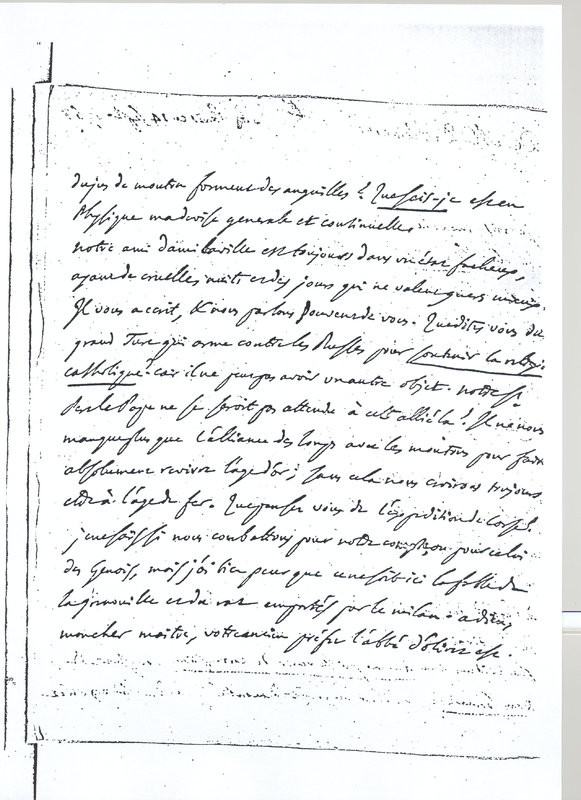 du jus de mouton forment des anguilles ? Que sais-je est en
Physique ma devise generale et continuelle.
notre ami damilaville est toujours dans un etat facheux,
ayant de cruelles nuits et des jours qui ne valent guere mieux.
Il vous a ecrit, & nous parlons souvent de vous. Que dites vous du
grand Turc qui arme contre les Russes pour soutenir la religion
catholique ? car il ne peut pas avoir un autre objet. notre St.
Pere le Pape ne se seroit pas attendu à cet allié là ! Il ne nous
manque plus que l'alliance des loups avec les moutons pour faire
absolument revivre l'age d'or ; sans cela nous croirons toujours
etre à l'age de fer. Que pensez vous de l'expedition de Corse ?
je ne sais si nous combattons pour notre compte, ou pour celui
des Genois, mais j'ai bien peur que ce ne soit ici la fable de
la grenouille et du rat emportés par le milan. adieu,
mon cher maitre, votre ancien prefet l'abbé d'olivet est